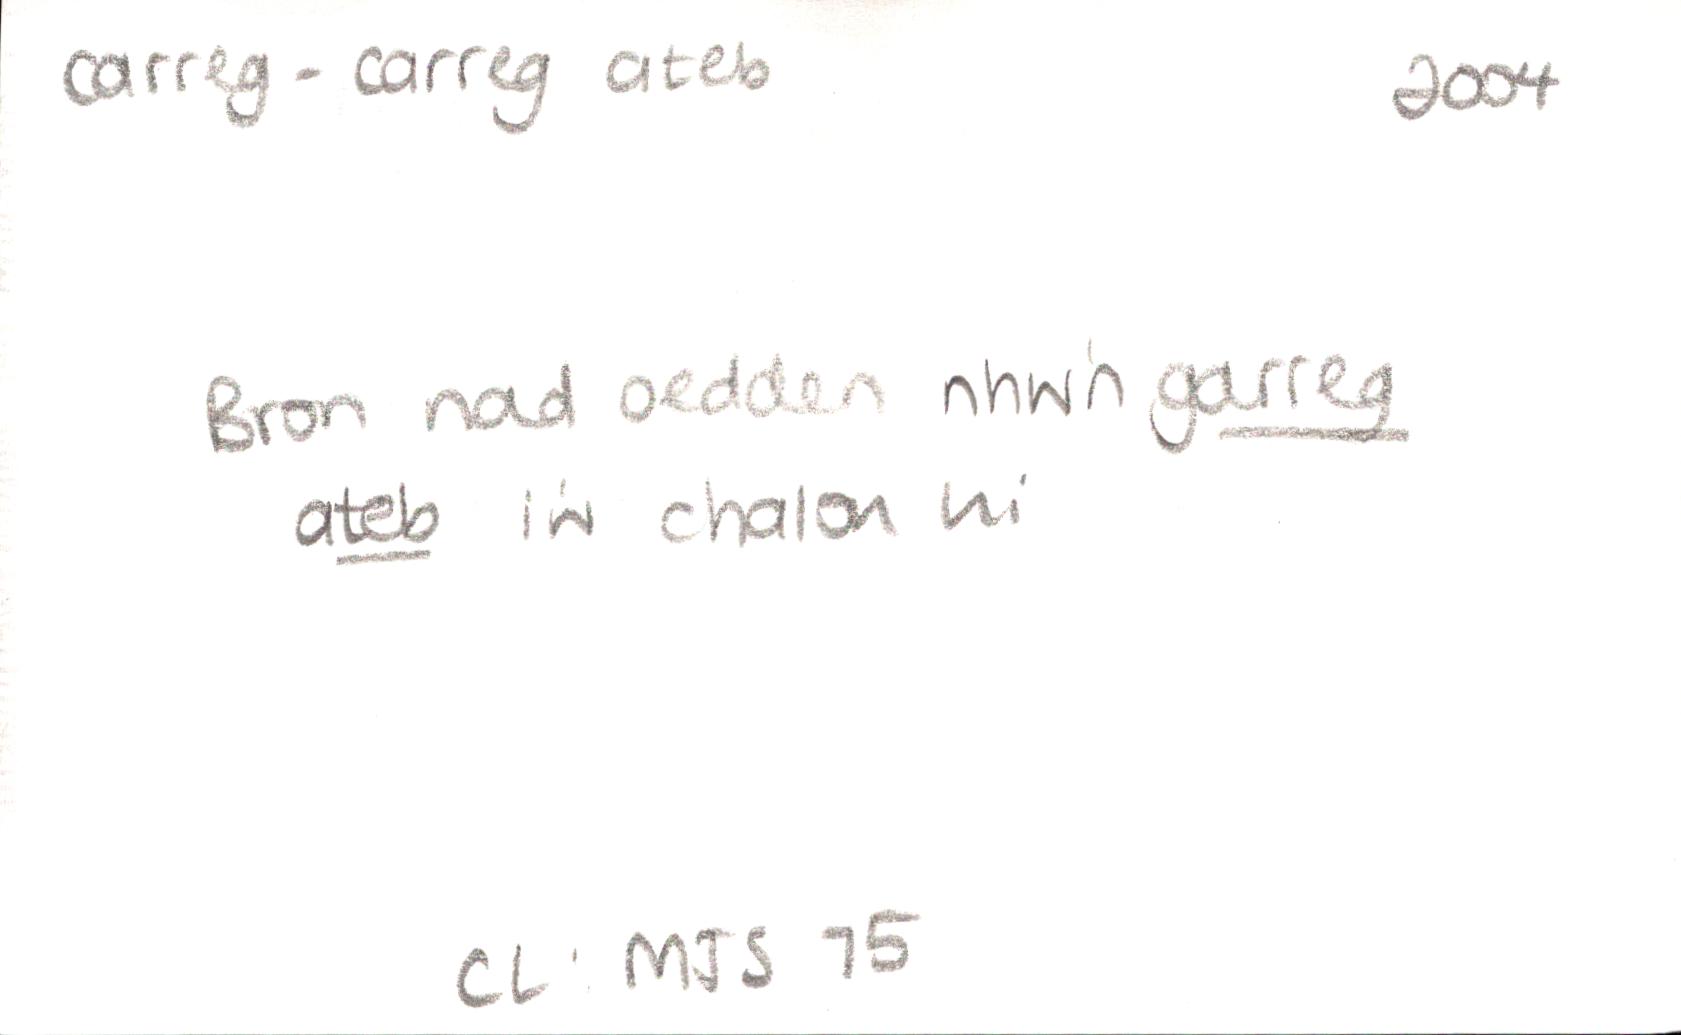 carreg - carreg ateb 2004
Bron nad oedden nhw'n garreg
ateb i'w chalon hi
CL: MJS 75